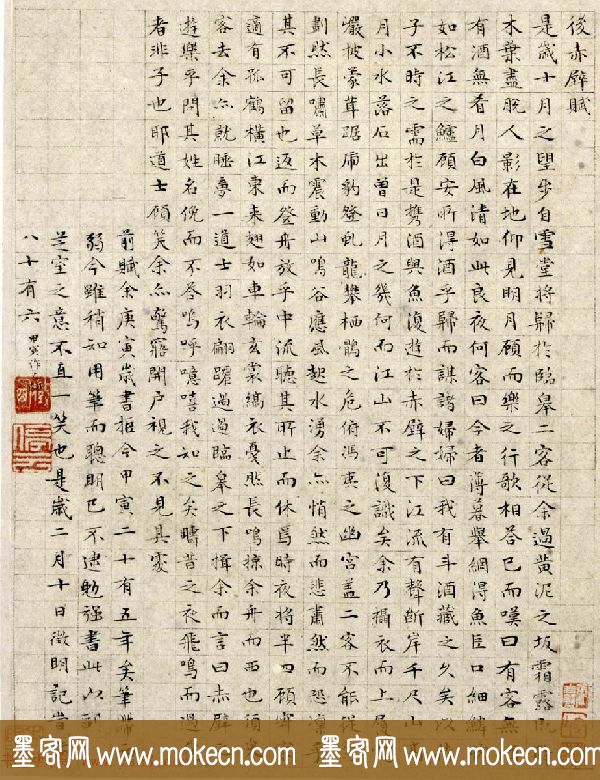 後赤壁賦
是歲十月之望步自雪堂將歸於臨皋二客從余過黃泥之坂霜露既
木葉盡脫人影在地仰見明月顧而樂之行歌相答已而嘆曰有客無
有酒無肴月白風清如此良夜何客曰今者薄暮舉網得魚巨口細鱗
如松江之鱸顧安所得酒乎歸而謀諸婦婦曰我有斗酒藏之久矣以
子不時之需於是攜酒與魚復遊於赤壁之下江流有聲斷岸千尺山
月小水落石出曾日月之幾何而江山不可復識矣余乃攝衣而上履
巖披蒙茸踞虎豹登虬龍攀栖鶻之危俯馮夷之幽宮蓋二客不能從
劃然長嘯草木震動山鳴谷應風起水湧余亦悄然而悲肅然而恐凜乎
其不可留也返而登舟放乎中流聽其所止而休焉時夜將半四顧寂
適有孤鶴橫江東来翅如車輪玄裳縞衣戛然長鳴掠余舟而西也須
客去余亦就睡夢一道士羽衣翩躚過臨皋之下揖余而言曰赤壁
遊樂乎問其姓名俛而不答嗚呼噫嘻我知之矣疇昔之夜飛鳴而過
者非子也耶道士顧笑余亦驚寤開戶視之不見其處
前賦余庚寅歲書抵今甲寅二十有五年矣筆滯
弱今雖稍知用筆而聰明已不逮勉強書此以
芝室之意不直一笑也是歲二月十日徵明記
八十有六 甲寅作
墨客网 www.mokecn.com 墨客网 www.mokecn.com